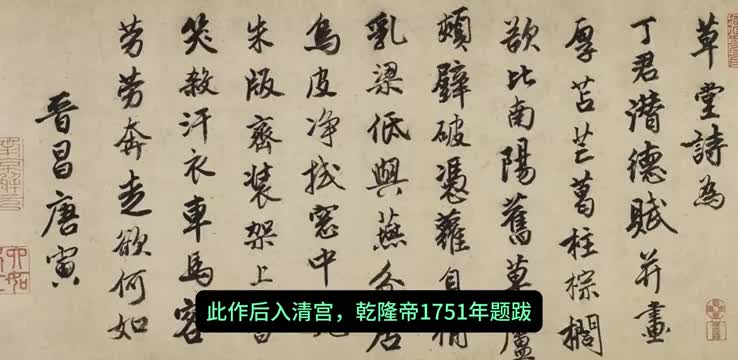 草堂詩為
丁君潜德賦并畫
厚苫芒葛柱棕櫚
欲比南陽舊草廬
頹壁破憑蘿自補
乳梁低與燕分居
烏皮净拭窓中几
朱版齊装架上書
笑殺汗衣車馬客
劳劳奔走欲何如
晋昌唐寅
此作后入清宫，乾隆帝1751年题跋